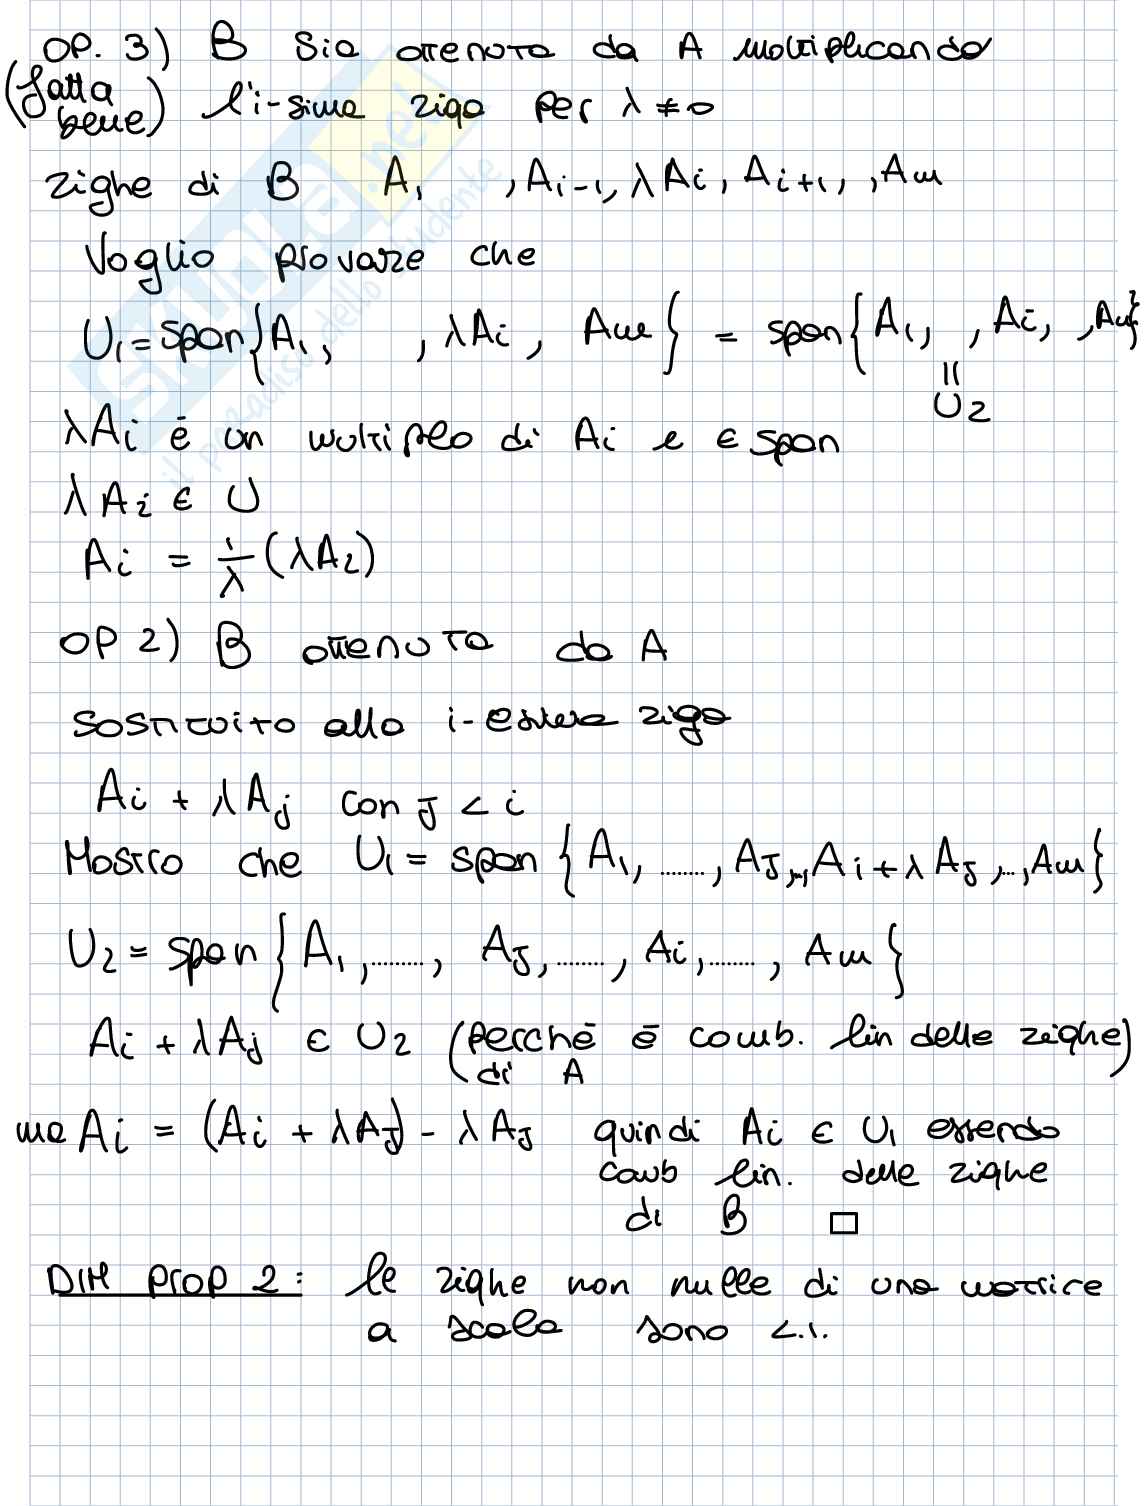 OP. 3) B sia ottenuta da A moltiplicando
(fatta bene) l'i-sima riga per λ ≠ 0
righe di B A₁ , Aᵢ₋₁, λAᵢ, Aᵢ₊₁, , Aₘ
Voglio provare che
U₁ = span{A₁, , λAᵢ, Aₘ} = span{A₁, , Aᵢ, , Aₘ}
= U₂
λAᵢ è un multiplo di Aᵢ e ∈ span
λAᵢ ∈ U
Aᵢ = 1/λ (λA₂)
OP 2) B ottenuta da A
sostituito alla i-esima riga
Aᵢ + λAⱼ con J < i
Mostro che U₁ = span {A₁, ........, AJ,..., Aᵢ + λAJ,..., Aₘ}
U₂ = span {A₁, ........, AJ, ........, Aᵢ, ........, Aₘ}
Aᵢ + λAⱼ ∈ U₂ (perché è comb. lin delle righe)
di A
ma Aᵢ = (Aᵢ + λAJ) - λAJ quindi Aᵢ ∈ U₁ essendo
comb lin. delle righe
di B □
DIM PROP 2: le righe non nulle di una matrice
a scala sono L.I.
SKUOLA.net
il paradiso dello studente